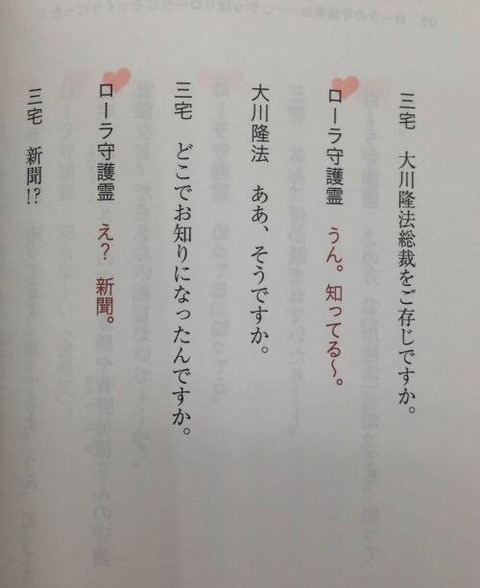 三宅　大川隆法総裁をご存じですか。
ローラ守護霊　うん。知ってる～。
大川隆法　ああ、そうですか。
三宅　どこでお知りになったんですか。
ローラ守護霊　え？　新聞。
三宅　新聞!?